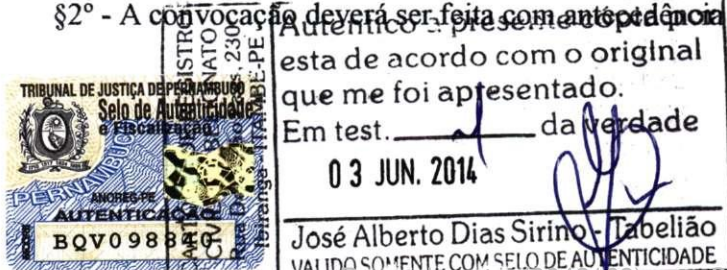 §2º - A convocação deverá ser feita com antecedência
Autentico a presente cópia por
esta de acordo com o original
que me foi apresentado.
Em test. da verdade
03 JUN. 2014
José Alberto Dias Sirino - Tabelião
VALIDO SOMENTE COM SELO DE AUTENTICIDADE
REGISTRO
NATO
230
ITAMBÉ-PE
TRIBUNAL DE JUSTIÇA DE PERNAMBUCO
Selo de Autenticidade
e Fiscalização
PERNAMBUCO
ANOREG-PE
AUTENTICAÇÃO